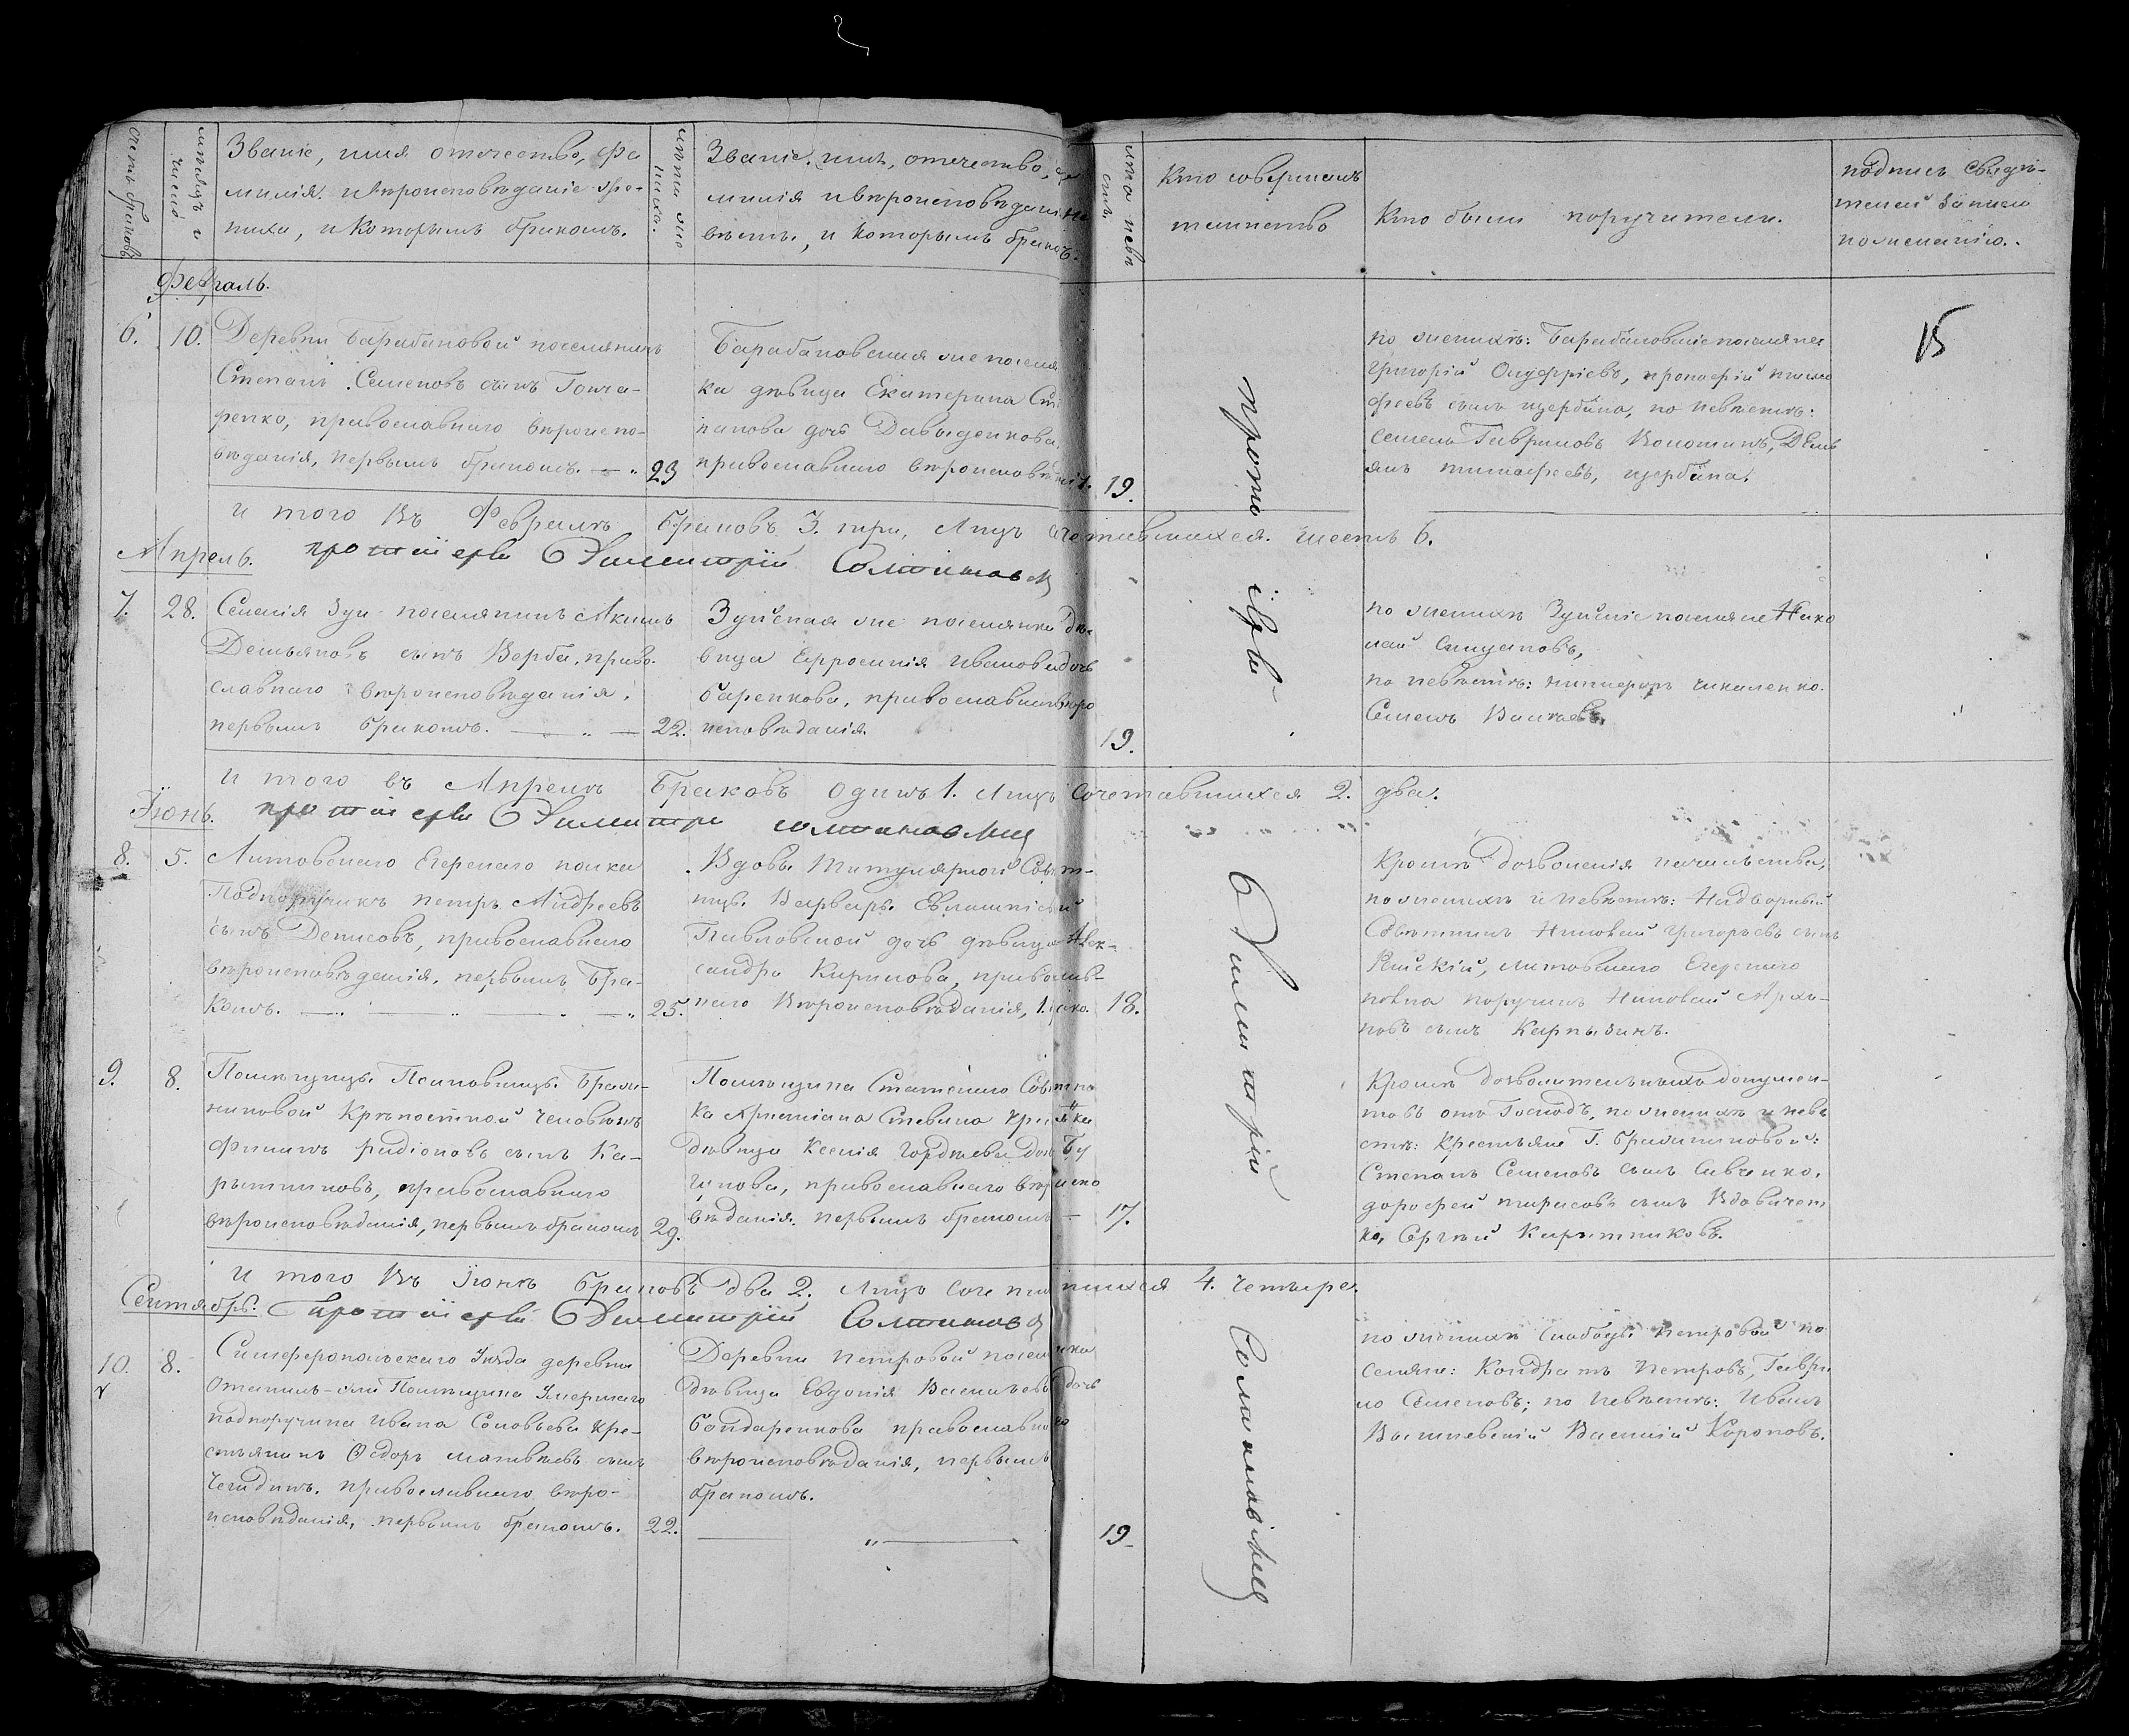 счетъ браковъ
мѣсяцъ и число
Званіе, имя отечество, фа
милія. и вѣроисповѣданіе же-
ниха, и которымъ бракомъ.
лѣта же
ниха.
Званіе. имя, отечество, фа
милія и вѣроисповѣданіе не
вѣсты, и которымъ бракомъ.
лѣта невѣ
сты.
Кто совершалъ
таинство
Кто были поручители.
подпись свидѣ-
телей записи
по желанію.
Февраль.
6. 10. Деревни Барабановой поселянинъ
Степанъ Семеновъ сынъ Гонча-
ренко, православнаго вѣроиспо-
вѣданія, первымъ бракомъ. 23
Барабановская же поселя
ка дѣвица Екатерина Сте
панова дочь Давыденкова,
православнаго вѣроисповѣданія. 19.
по женихѣ: Барабановскіе поселяне
Григорій Онуфріевъ, прокофій тимо
феевъ сынъ щербина, по невѣстѣ:
Семенъ Гавриловъ Волошинъ, Демь
янъ тимофеевъ, щербина.
15
и того Въ Февралѣ Браковъ 3. три, Лицъ сочетавшихся. шесть 6.
протоіерей Димитрій
Апрель.
7. 28. Селенія Зуи поселянинъ Акимъ
Демьяновъ сынъ Верба, право-
славнаго вѣроисповѣданія,
первымъ бракомъ. 22.
Зуйская же поселянка дѣ
вица Ефросинія Иванова дочь
Баренкова, православнаго вѣро
исповѣданія. 19.
по женихѣ Зуйскіе поселяне Нико
лай
по невѣстѣ: никифоръ чикаленко.
Семенъ
И того въ Апрелѣ Браковъ одинъ 1. лицъ сочетавшихся 2. два.
протоіерей Димитрій
Іюнь.
8. 5. Литовскаго Егерскаго полка
Подпоручикъ петръ Андреевъ
сынъ Денисовъ, православнаго
вѣроисповѣданія, первымъ Бра-
комъ. 25.
Вдовы Титулярной Совѣт-
ницы Варвары Евлампіевой
Павловской дочь дѣвица Алек-
сандра Кирилова, православ-
наго Вѣроисповѣданія, 1. брако. 18.
Кромѣ дозволенія начальства,
по женихѣ и невѣстѣ: Надворный
Совѣтникъ Николай григорьевъ сынъ
Райскій, литовскаго Егерскаго
полка поручикъ Николай Архи-
повъ сынъ Карпызинъ.
9. 8. Помѣщицы
Крѣпостной человѣкъ
филипъ радіоновъ сынъ Ка-
рытниковъ, православнаго
вѣроисповѣданія, первымъ бракомъ 29.
Помѣщика Статскаго Совѣтни
ка Христіана Стевена крестьянка
дѣвица Ксенія гордѣева дочь Бу
гунова, православнаго вѣроиспо
вѣданія. первымъ бракомъ 17.
Кромѣ дозволительныхъ докумен-
товъ отъ Господъ, по женихѣ и невѣ
стѣ: крестьяне Г.
Степанъ Семеновъ сынъ Савченко,
дорофей тарасовъ сынъ Вдовичен
ко, Сергѣй Карытниковъ.
И того Въ Іюнѣ браковъ два 2. лицъ сочетавшихся 4. четыре.
протоіерей Димитрій
Сентябрь.
10. 8. Симферопольскаго Уѣзда деревни
Помѣщика Умершаго
подпоручика Ивана Соловьева кре-
стьянинъ Ѳедоръ матвѣевъ сынъ
православнаго вѣро-
исповѣданія, первымъ бракомъ. 22.
Деревни петровой поселянка
дѣвица Евдокія Васильева дочь
бондаренкова православнаго
вѣроисповѣданія, первымъ
бракомъ. 19
по женихѣ слободы петровой по
селяне: Кондратъ петровъ, Гаври
ло Семеновъ; по невѣстѣ: Иванъ
Василевскій Василій Короповъ.
протоіерей Димитрій